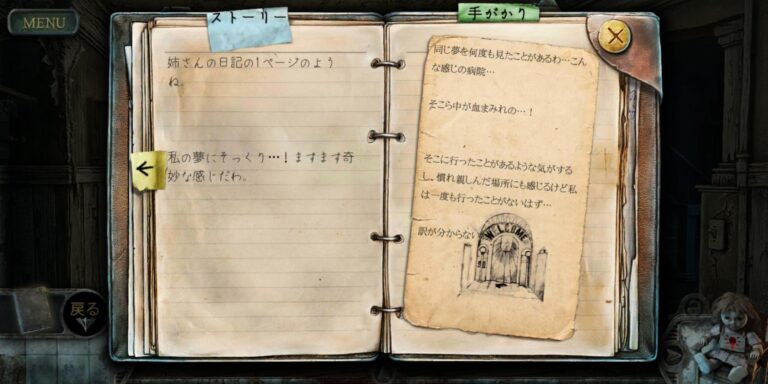 MENU
ストーリー
手がかり
姉さんの日記の1ページのよう
ね。
私の夢にそっくり…!ますます奇
妙な感じだわ。
同じ夢を何度も見たことがあるわ…こん
な感じの病院…
そこら中が血まみれの…!
そこに行ったことがあるような気がする
し、慣れ親しんだ場所にも感じるけど私
は一度も行ったことがないはず…
訳が分からない
WELCOME
戻る